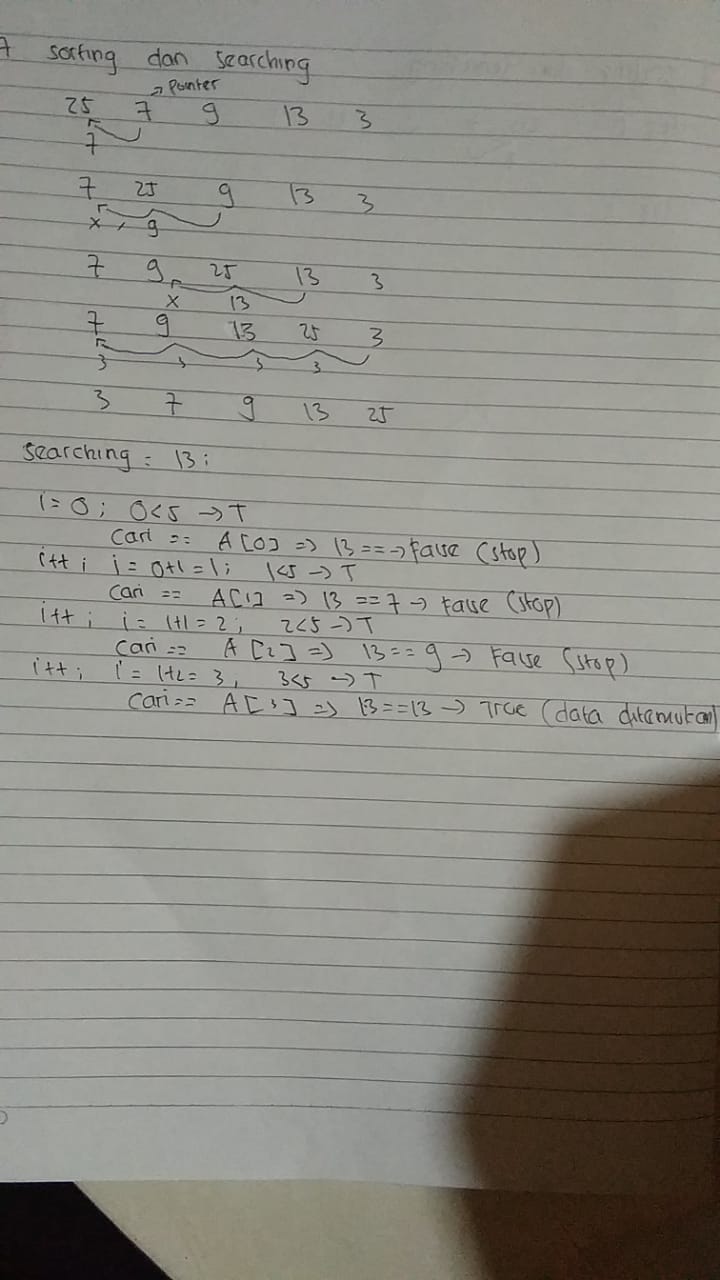 7 sorting dan searching
→ Pointer
25 7 9 13 3
7
7 25 9 13 3
x, 9
7 9 25 13 3
x 13
7 9 13 25 3
3 3 3 3
3 7 9 13 25
Searching = 13;
i = 0; 0<5 → T
Cari == A[0] => 13 == → False (stop)
i++; i = 0+1 = 1; 1<5 → T
Cari == A[1] => 13 == 7 → False (stop)
i++; i = 1+1 = 2; 2<5 → T
Cari == A[2] => 13 == 9 → False (stop)
i++; i = 1+2 = 3, 3<5 → T
Cari == A[3] => 13 == 13 → True (data ditemukan)